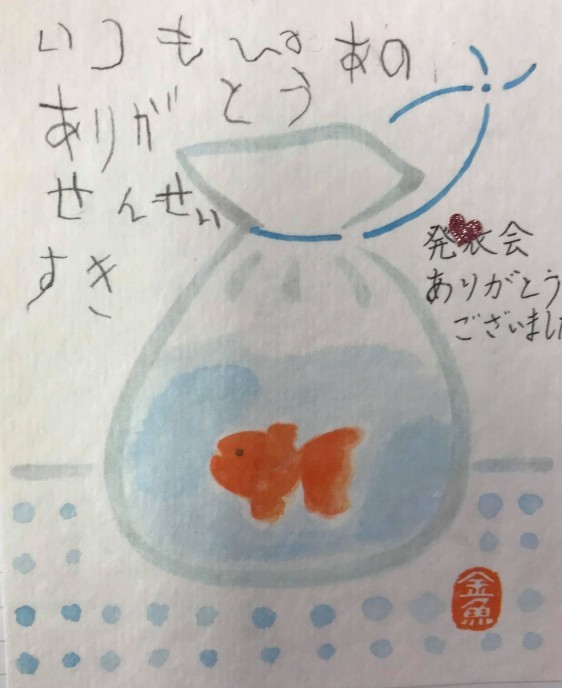 いつも ぴあの
ありが とう
せんせい
すき
発表会
ありがとう
ございまし
金魚